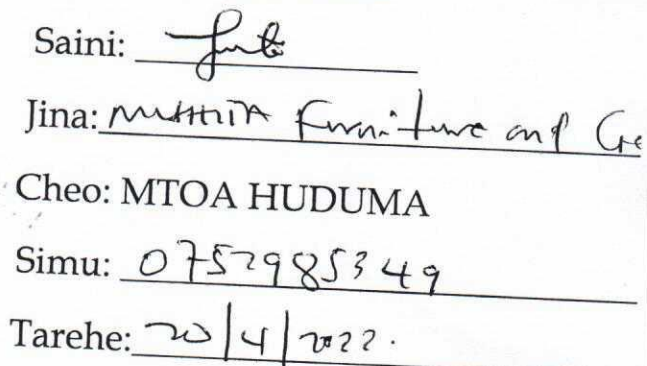 Saini:
Jina: Furniture and Ge
Cheo: MTOA HUDUMA
Simu: 0752985349
Tarehe: 20/4/2022.